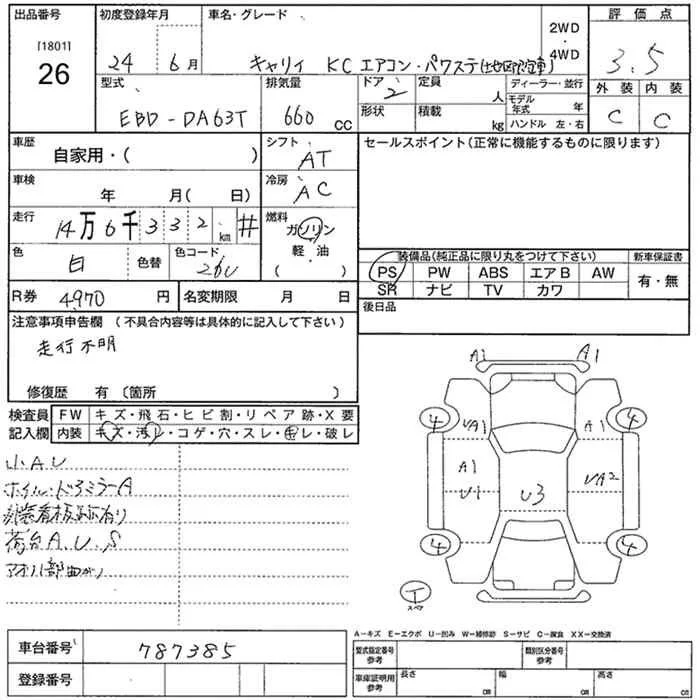 出品番号 初度登録年月 車名・グレード 2WD・4WD 評価点
[1801]
26
24 6月 キャリイ KC エアコン・パワステ 3.5
型式 排気量 ドア 2 定員 人 ディーラー・並行 外装 内装
EBD-DA63T 660 CC 形状 積載 kg モデル年式 年 C C
ハンドル 左・右
車歴 シフト セールスポイント(正常に機能するものに限ります)
自家用・( ) AT
車検 冷房
年 月( 日) AC
走行 燃料
14万6千332km # ガソリン
軽・油
( )
色 色替 色コード 装備品(純正品に限り丸をつけて下さい) 新車保証書
白 26U PS PW ABS エアB AW 有・無
SR ナビ TV カワ
R券 4970円 名変期限 月 日 後日品
注意事項申告欄 (不具合内容等は具体的に記入して下さい)
走行不明
修復歴 有〔箇所 〕
検査員 FW キズ・飛石・ヒビ割・リペア跡・X要
記入欄 内装 キズ・汚レ・コゲ・穴・スレ・キレ・破レ
小AU
ホイル・ドアミラーA
荷台A.U.S
アオリ一部曲がり
A1 A1
4 UA1 A1 4
A1
U1 U3 UA2
4 4
T
スペア
A−キズ E−エクボ U−凹み W−補修跡 S−サビ C−腐食 XX−交換済
車台番号 787385 型式指定番号 参考 類別区分番号 参考
登録番号 車庫証明用 参考 長さ cm 幅 cm 高さ cm